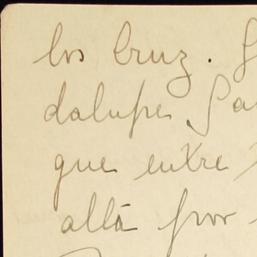 los Cruz. G
dalupe, Sa
que entre
allá por